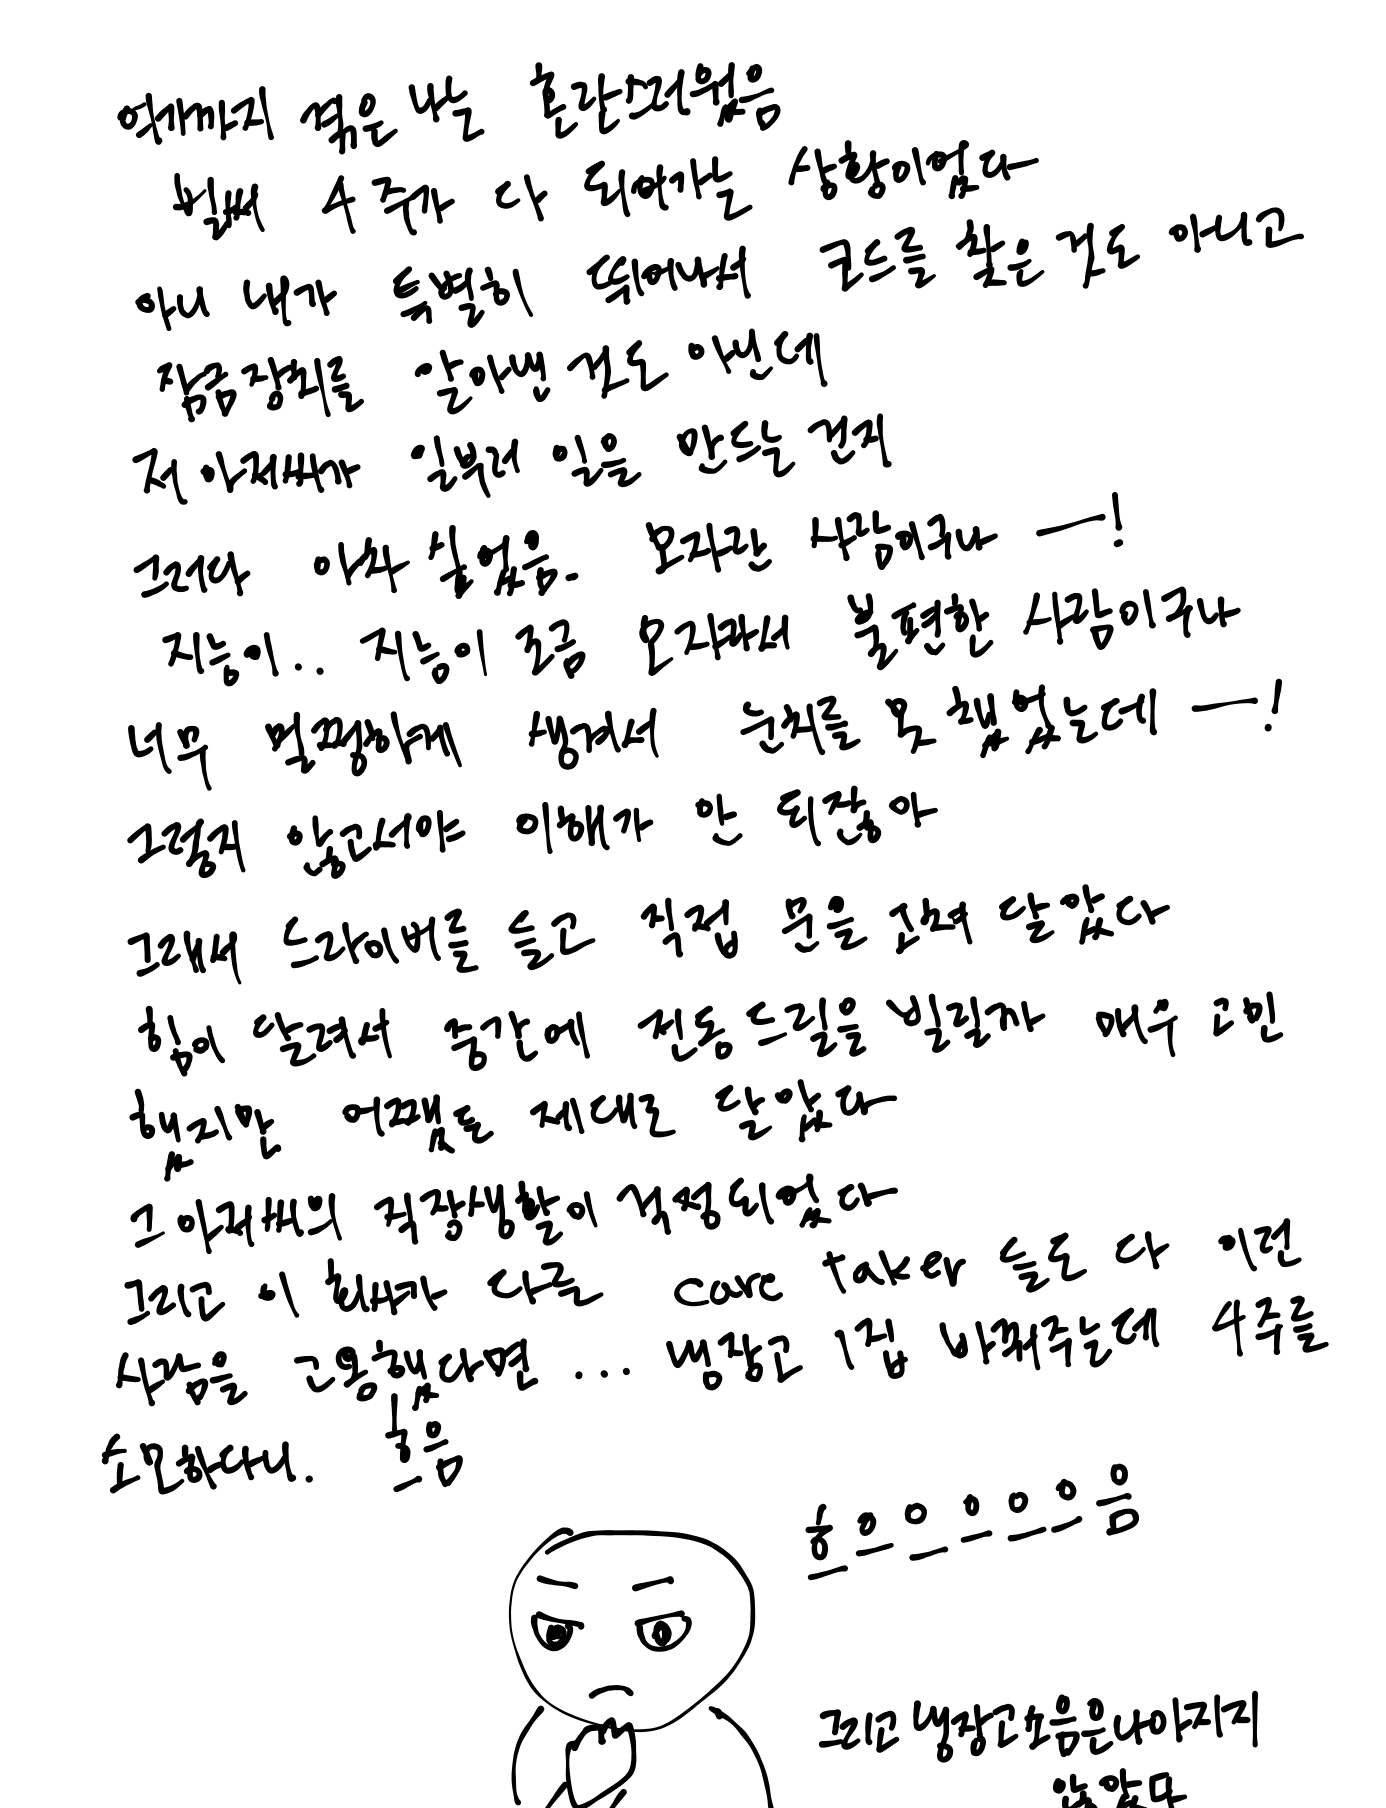 여기까지 겪은 나는 혼란스러웠음
벌써 4주가 다 되어가는 상황이었다
아니 내가 특별히 뛰어나서 코드를 찾은 것도 아니고
잠금장치를 알아낸 것도 아닌데
저 아저씨가 일부러 일을 만드는 건지
그러다 아차 싶었음. 모자란 사람이구나 ―!
지능이.. 지능이 조금 모자라서 불편한 사람이구나
너무 멀쩡하게 생겨서 눈치를 못 챘었는데 ―!
그렇지 않고서야 이해가 안 되잖아
그래서 드라이버를 들고 직접 문을 고쳐 달았다
힘이 달려서 중간에 전동드릴을 빌릴까 매우 고민
했지만 어쨌든 제대로 달았다
그 아저씨의 직장생활이 걱정되었다
그리고 이 회사가 다른 care taker 들도 다 이런
사람을 고용했다면 ... 냉장고 1집 바꿔주는데 4주를
소모하다니. 흐음
흐으으으으으음
그리고 냉장고소음은나아지지
않았다